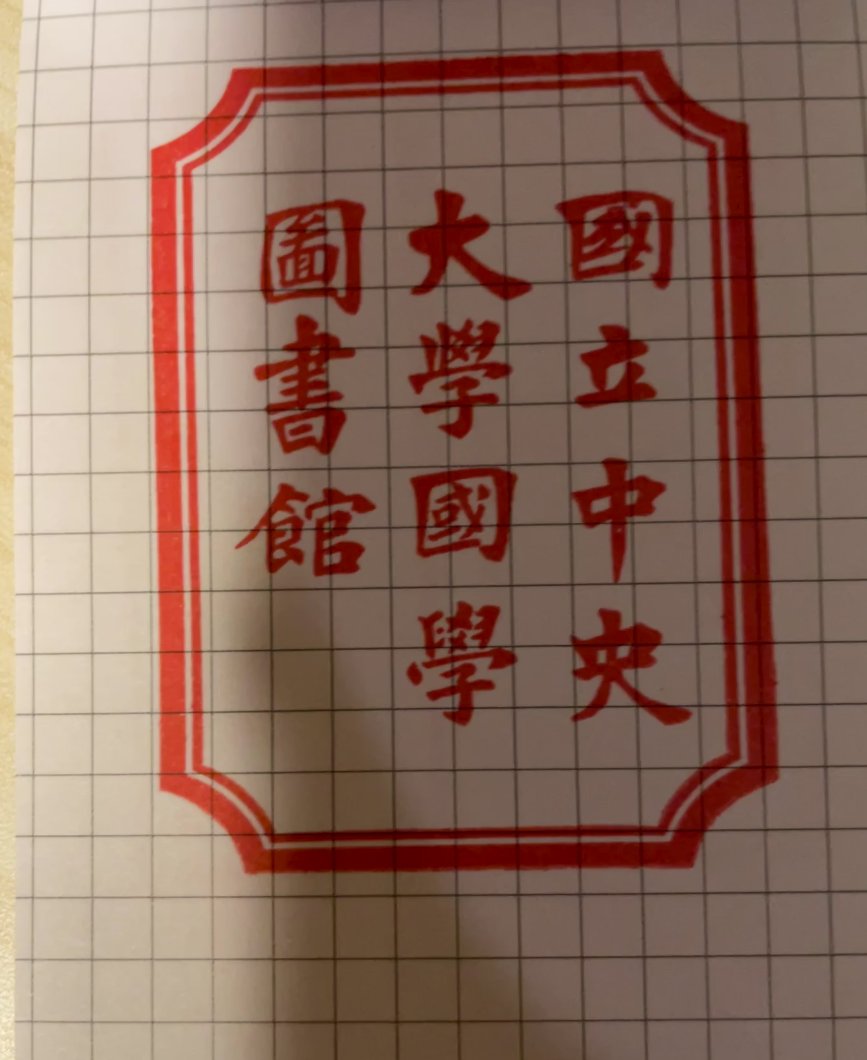 國立中央
大學國學
圖書館